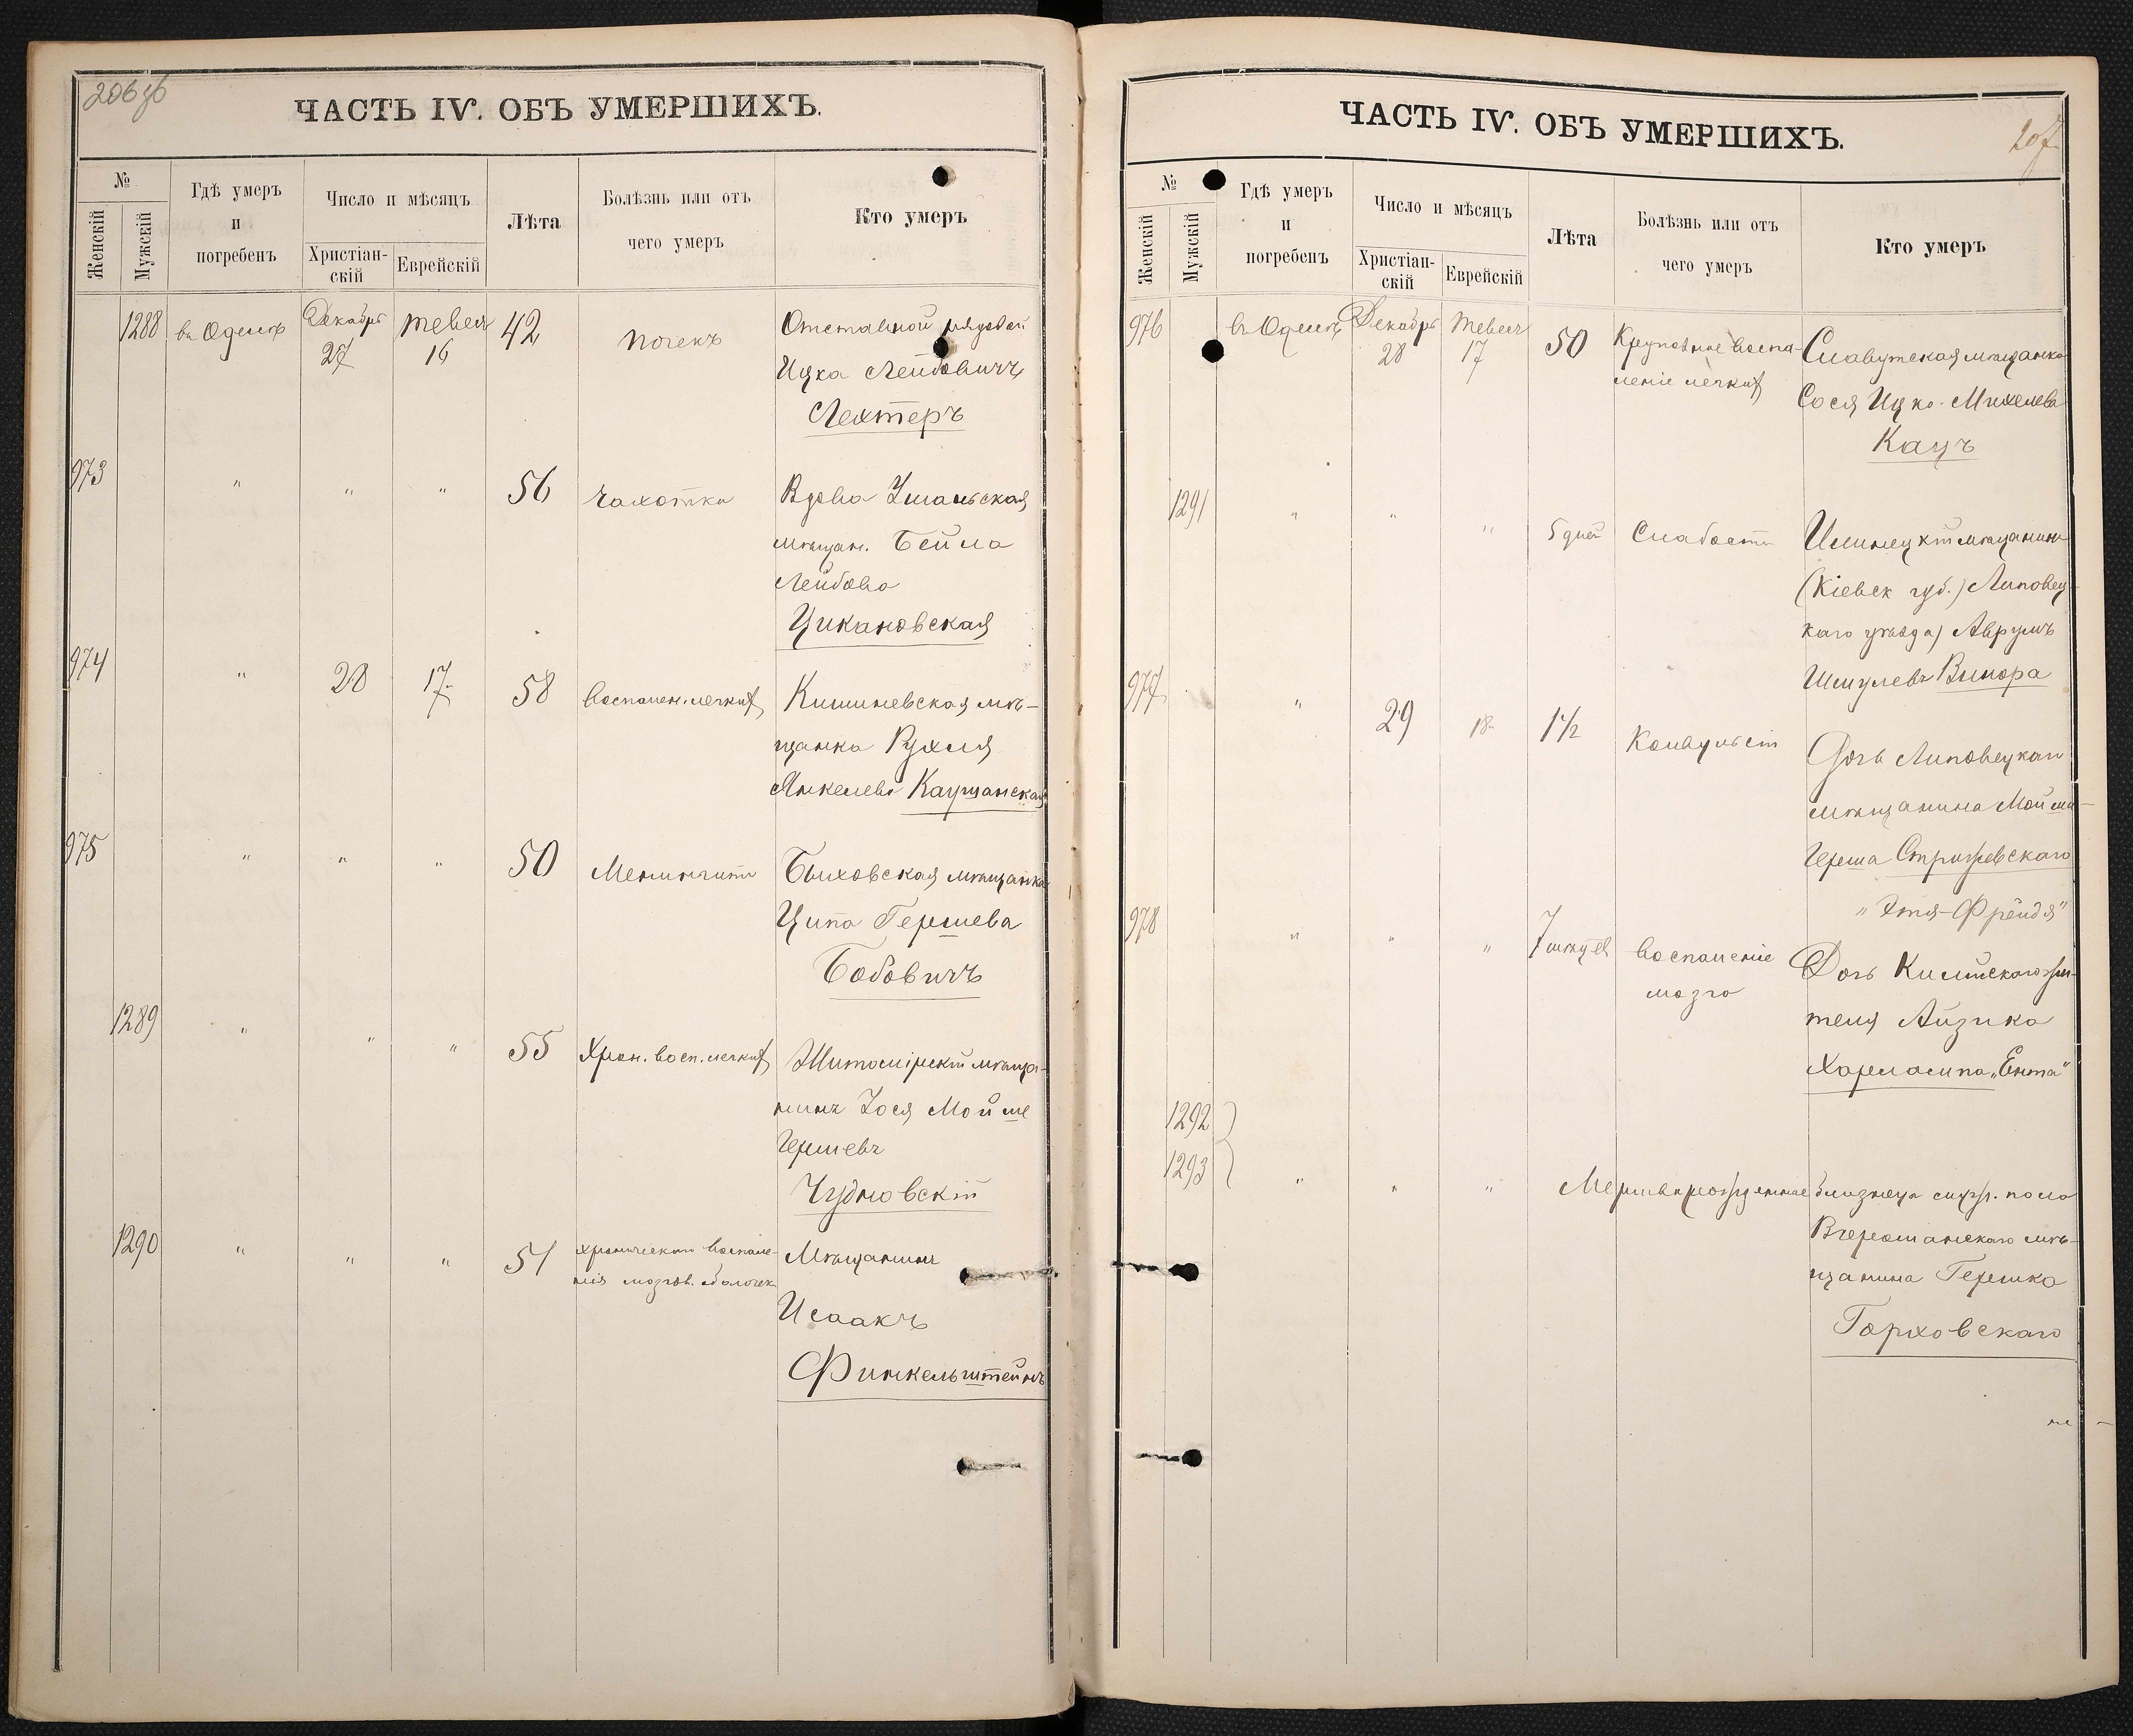 206об
ЧАСТЬ IV. ОБЪ УМЕРШИХЪ.
№
Женскій
Мужскій
Гдѣ умеръ
и
погребенъ
Число и мѣсяцъ
Христіан-
скій
Еврейскій
Лѣта
Болѣзнь или отъ
чего умеръ
Кто умеръ
1288 въ Одессѣ Декабрь 27 Тевесъ 16 42 Почекъ Отставной рядовой
Ицка Лейбовичъ
Лехтеръ
973 " " " 56 Чахотки Вдова Уманьская
мѣщан. Бейла
Лейбова
Цикановская
974 " 28 17 58 Воспален. легкихъ Кишиневская мѣ-
щанка Рухля
Янкелева Каушанская
975 " " " 50 Менингитъ Быховская мѣщанка
Ципа Гершева
Бобовичъ
1289 " " " 55 Хрон. восп. легкихъ Житомірскій мѣща-
нинъ Іося Мойше
Гершевъ
Чудновскій
1290 " " " 51 хроническаго воспале-
нія мозгов. оболочек Мѣщанинъ
Исаакъ
Финкельштейнъ
207
ЧАСТЬ IV. ОБЪ УМЕРШИХЪ.
№
Женскій
Мужскій
Гдѣ умеръ
и
погребенъ
Число и мѣсяцъ
Христіан-
скій
Еврейскій
Лѣта
Болѣзнь или отъ
чего умеръ
Кто умеръ
976 въ Одессѣ Декабрь 28 Тевесъ 17 50 Крупозное воспа-
леніе легкихъ Славутская мѣщанка
Сося Ицко-Михелева
Кацъ
1291 " " " 5 дней Слабости Ильинецкій мѣщанинъ
(Кіевск губ.) Липовец-
каго уѣзда) Аврумъ
Шмулевъ Винора
977 " 29 18 1 1/2 Конвульсіи Дочь Липовецкаго
мѣщанина Мойше
Герша Стрижевскаго
"Этя-Фрейда"
978 " " " 7 мѣсяцев Воспаленіе
мозга Дочь Килійскаго жи-
теля Айзика
Харлампа "Ента"
1292
1293 " " " Мертворожденные близнеца мужск. пола
Вчерашанскаго мѣ-
щанина Гершка
Горховскаго